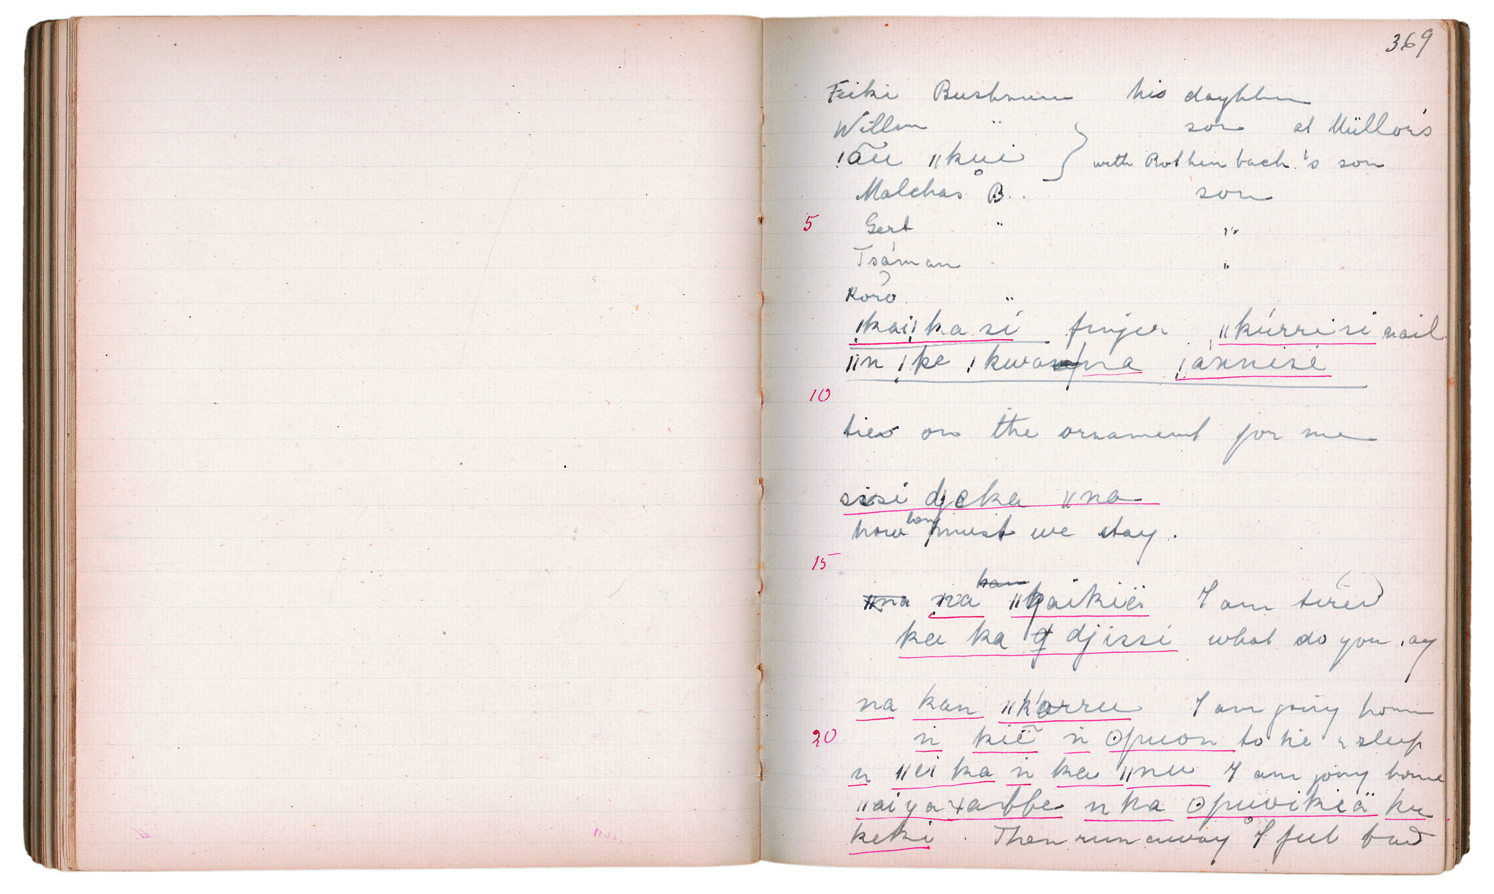 369
Feiki Bushman his daughter
Willem " son at Müller's
!ãu ǁkui } with Rothenbach's son
Malchas B.. son
5 Gert " "
Tsáman "
Koro "
ǀkaiǀka sí finger ǁkúrrisi nail
ǁn ǀke ǀkwa na ǀannisi
10
ties on the ornament for me
sisi djeka ǁna
how long must we stay.
15
na ǁkaikië I am tired
ka ka djissi what do you say
na kan ǁk'orru I am going home
20 n kië n ʘpuon to lie asleep
n ǁei ka n ka ǁnu I am going home
ǁaiya xabbe n ka ʘpuoikiä ku
keki. Then run away I feel bad